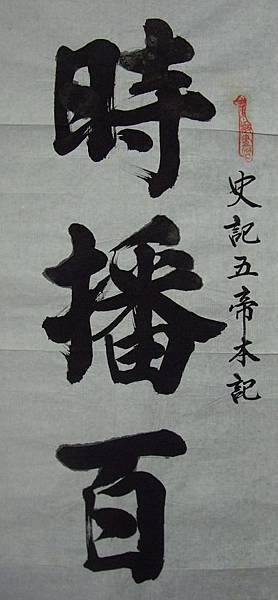 史記五帝本記
時播百